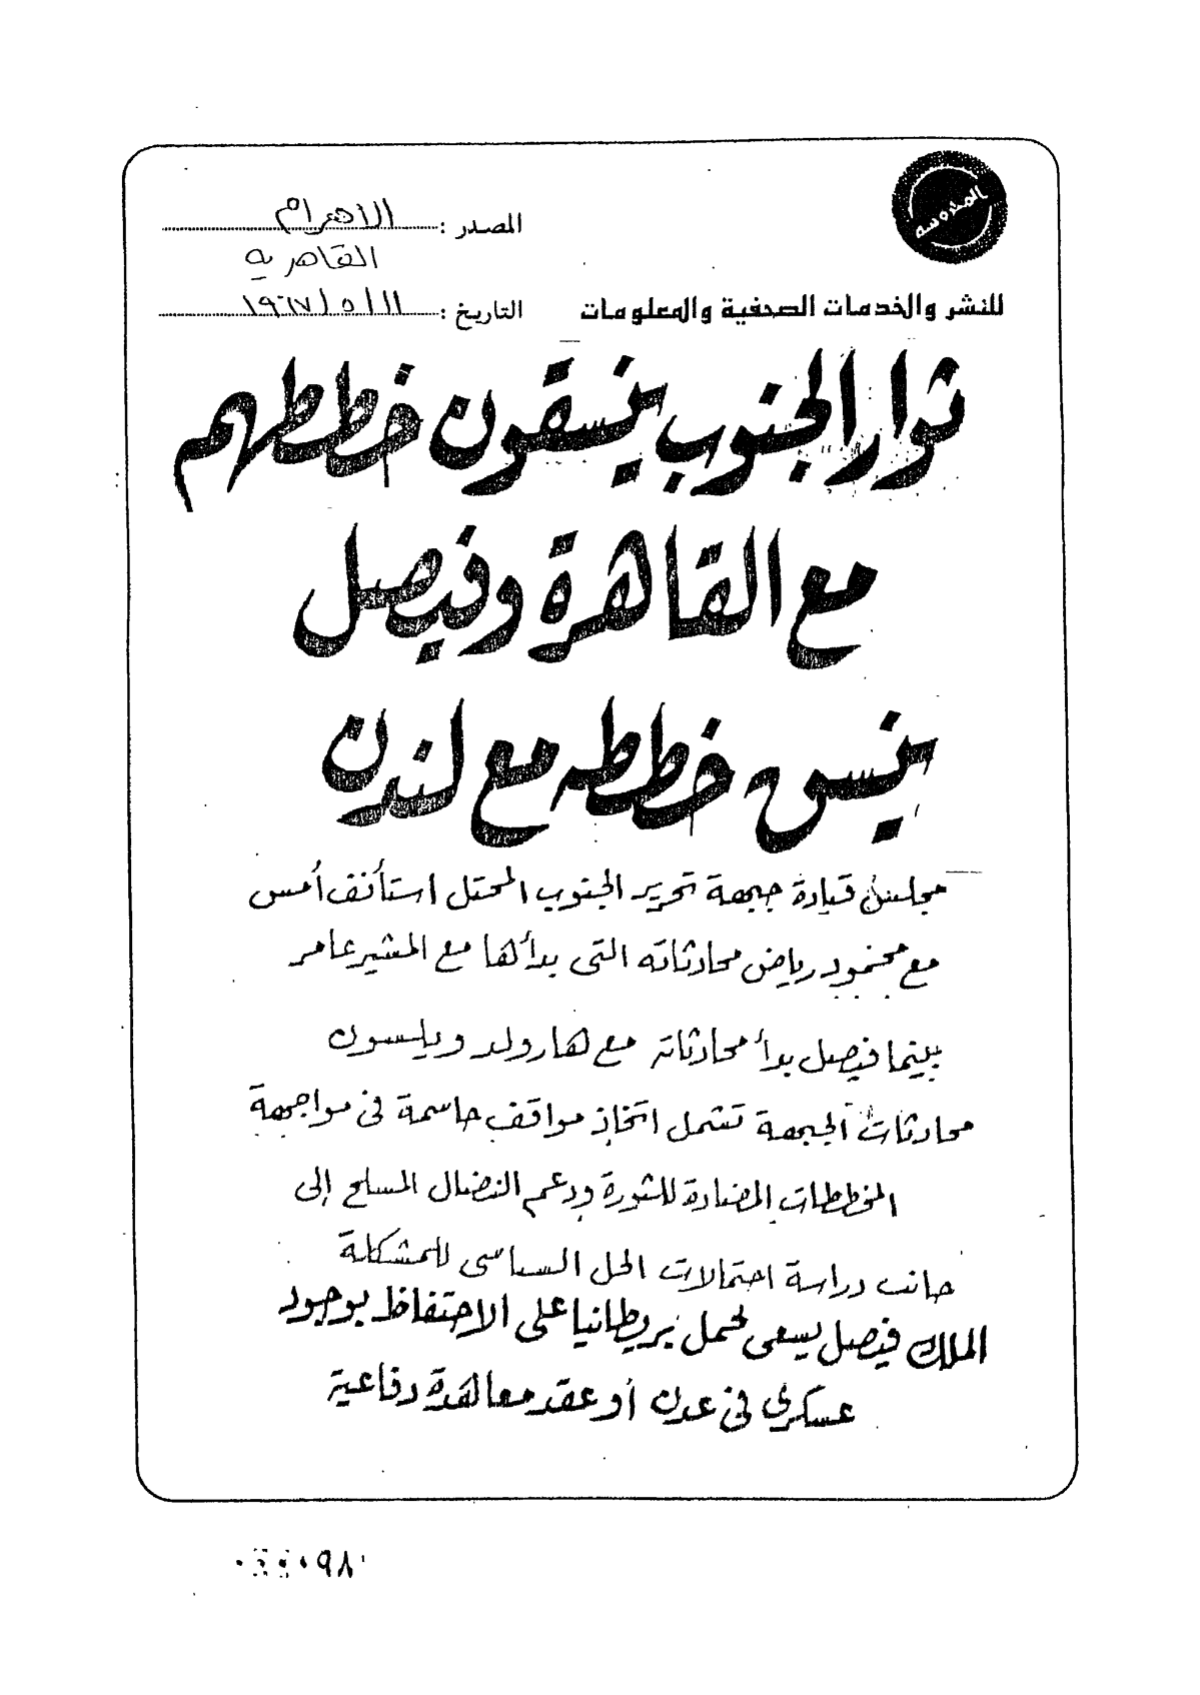 المحروسة
المصدر : الأهرام
القاهرية
للنشر والخدمات الصحفية والمعلومات
التاريخ : ١١/ ٥/ ١٩٦٧
ثوار الجنوب ينسقون خططهم
مع القاهرة وفيصل
ينسق خططه مع لندن
مجلس قيادة جبهة تحرير الجنوب المحتل استأنف أمس
مع محمود رياض محادثاته التى بدأها مع المشير عامر
بينما فيصل بدأ محادثاته مع هارولد ويلسون
محادثات الجبهة تشمل اتخاذ مواقف حاسمة فى مواجهة
المخططات المضادة للثورة ودعم النضال المسلح إلى
جانب دراسة احتمالات الحل السياسى للمشكلة
الملك فيصل يسعى لحمل بريطانيا على الاحتفاظ بوجود
عسكرى فى عدن أو عقد معاهدة دفاعية
٩٨